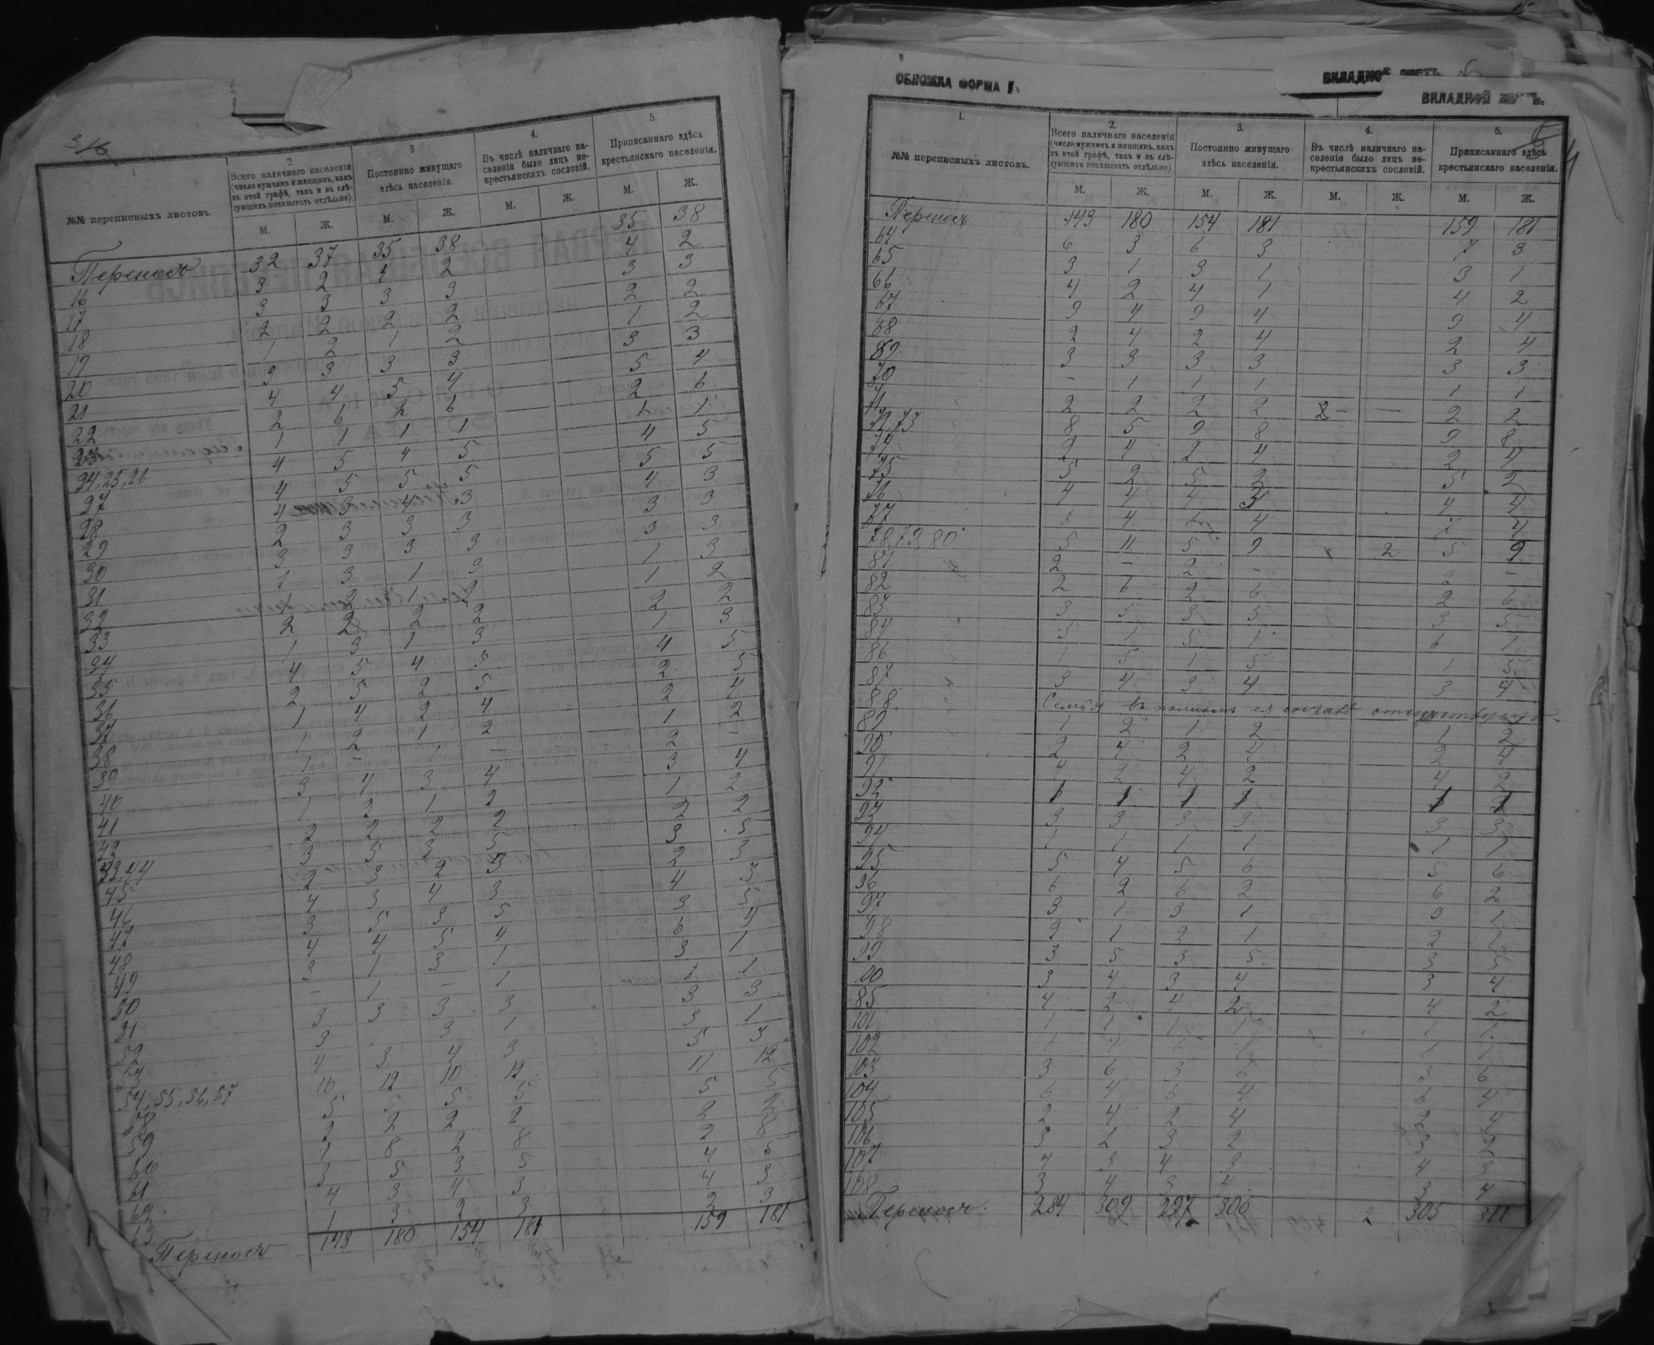 5.
4.
3
2.
1
№№ переписныхъ листовъ.
Всего наличнаго населенія
(число мужчинъ и женщинъ, какъ
въ этой графѣ, такъ и въ слѣ-
дующихъ показывать отдѣльно).
Постоянно живущаго
здѣсь населенія.
Въ числѣ наличнаго на-
селенія было лицъ не-
крестьянскихъ сословій.
Приписаннаго здѣсь
крестьянскаго населенія.
М. Ж. М. Ж. М. Ж. М. Ж.
Переносъ 32 37 35 38 35 38
16 3 2 4 2 4 2
17 3 3 3 3 3 3
18 2 2 2 2 2 2
19 1 2 1 2 1 2
20 3 3 3 3 3 3
21 4 4 5 4 5 4
22 2 6 2 6 2 6
23 1 1 1 1 1 1
24,25,26 4 5 4 5 4 5
27 4 5 5 5 5 5
28 4 3 4 3 4 3
29 2 3 3 3 3 3
30 3 3 3 3 3 3
31 1 3 1 3 1 3
32 1 2
33 2 2 2 2 2 2
34 1 3 1 3 1 3
35 4 5 4 5 4 5
36 2 5 2 5 2 5
37 1 4 2 4 2 4
38 1 2 1 2 1 2
39 1 - 1 - 2 -
40 3 4 3 4 3 4
41 1 2 1 2 1 2
42 2 2 2 2 2 2
43,44 3 5 3 5 3 5
45 2 3 2 3 2 3
46 4 3 4 3 4 3
47 3 5 3 5 3 5
48 4 4 5 4 6 4
49 3 1 3 1 3 1
50 - 1 - 1
51 3 3 3 3 3 3
52 3 1 3 1 3 1
53 4 3 4 3 5 3
54,55,56,57 10 12 10 12 11 12
58 5 5 5 5
59 2 2 2 2
60 8 2 8 2 8
61 3 5 3 5 4 5
62 4 3 4 3 4 3
63 1 3 2 3 2 3
Переносъ 143 180 154 181 159 181
ОБЛОЖКА ФОРМА 1.
ВКЛАДНОЙ ЛИСТЪ
ВКЛАДНОЙ ЛИСТЪ.
1. 2. 3. 4. 5.
№№ переписныхъ листовъ.
Всего наличнаго населенія
(число мужчинъ и женщинъ, какъ
въ этой графѣ, такъ и въ слѣ-
дующихъ показывать отдѣльно)
Постоянно живущаго
здѣсь населенія.
Въ числѣ наличнаго на-
селенія было лицъ не-
крестьянскихъ сословій.
Приписаннаго здѣсь
крестьянскаго населенія.
М. Ж. М. Ж. М. Ж. М. Ж.
Переносъ 143 180 154 181 159 181
64 6 3 6 3 7 3
65 3 1 3 1 3 1
66 4 2 4 1 4 2
67 9 4 9 4 9 4
68 2 4 2 4 2 4
69 3 3 3 3 3 3
70 - 1 1 1 1 1
71 2 2 2 2 - 2 2
72,73 8 5 9 8 9 8
74 2 4 2 4 2 4
75 5 2 5 2 5 2
76 4 4 4 3 4 4
77 6 4 6 4 7 4
78,79,80 5 11 5 9 2 5 9
81 2 - 2 - 2 -
82 2 6 2 6 2 6
83 3 5 3 5 3 5
84 5 1 5 1 6 1
86 1 5 1 5 1 5
87 3 4 3 4 3 4
88 Семья въ полномъ ея составѣ отсутствуетъ
89 1 2 1 2 1 2
90 2 4 2 4 2 4
91 4 2 4 2 4 2
92 1 1 1 1 1 1
93 3 3 3 3 3 3
94 1 1 1 1 1 1
95 5 4 5 6 5 6
96 6 2 6 2 6 2
97 3 1 3 1 3 1
98 2 1 2 1 2 1
99 3 5 3 5 3 5
100 3 4 3 4 3 4
85 4 2 4 2 4 2
101 1 1 1 1 1 1
102 1 1
103 3 6 3 6 3 6
104 6 4 6 4 6 4
105 2 4 2 4 2 4
106 3 2 3 2 3 2
107 4 3 4 3 4 3
108 3 4 3 4 3 4
Переносъ. 284 309 297 306 2 305 311